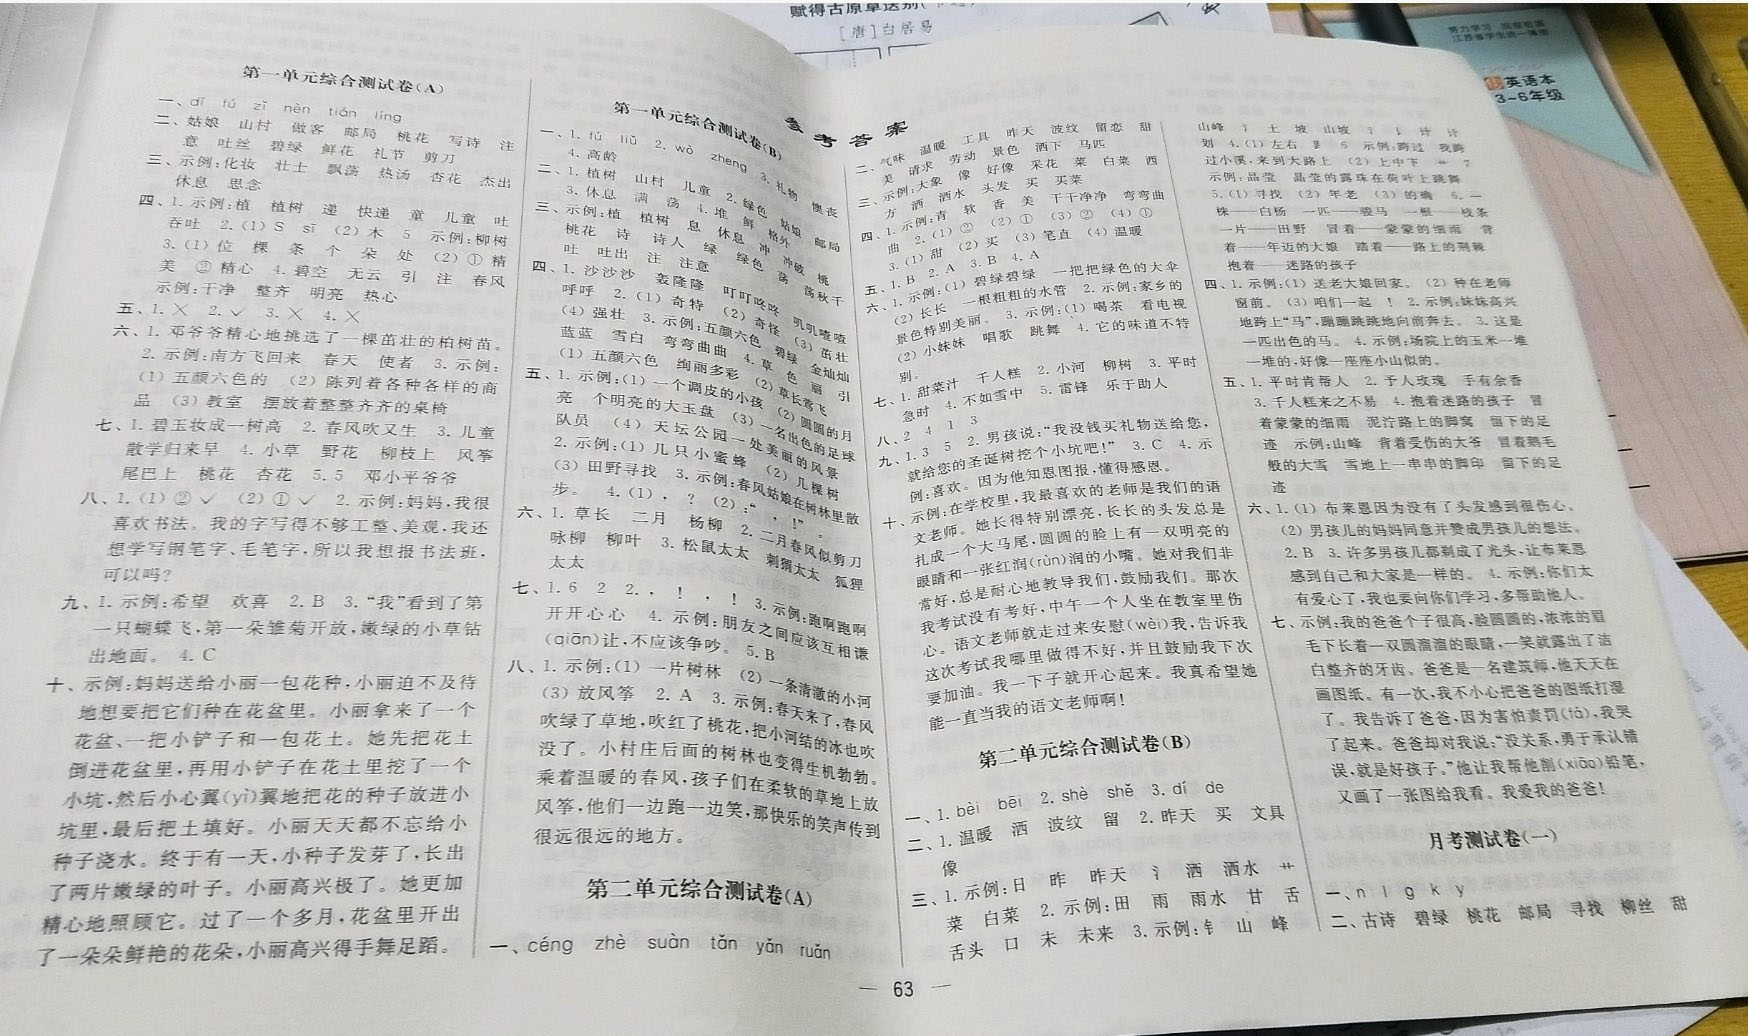 赋得古原草送别
[唐]白居易
英语本
3~6年级
参考答案
第一单元综合测试卷(A)
一、dī fú zǐ nèn tián líng
二、姑娘 山村 做客 邮局 桃花 写诗 注
意 吐丝 碧绿 鲜花 礼节 剪刀
三、示例:化妆 壮士 飘荡 热汤 杏花 杰出
休息 思念
四、1.示例:植 植树 递 快递 童 儿童 吐
吞吐 2.(1)S sī (2)木 5 示例:柳树
3.(1)位 棵 条 个 朵 处 (2)①精
美 ②精心 4.碧空 无云 引 注 春风
示例:干净 整齐 明亮 热心
五、1.× 2.✓ 3.× 4.×
六、1.邓爷爷精心地挑选了一棵茁壮的柏树苗。
2.示例:南方飞回来 春天 使者 3.示例:
(1)五颜六色的 (2)陈列着各种各样的商
品 (3)教室 摆放着整整齐齐的桌椅
七、1.碧玉妆成一树高 2.春风吹又生 3.儿童
散学归来早 4.小草 野花 柳枝上 风筝
尾巴上 桃花 杏花 5.5 邓小平爷爷
八、1.(1)②✓ (2)①✓ 2.示例:妈妈,我很
喜欢书法。我的字写得不够工整、美观,我还
想学写钢笔字、毛笔字,所以我想报书法班,
可以吗?
九、1.示例:希望 欢喜 2.B 3.“我”看到了第
一只蝴蝶飞,第一朵雏菊开放,嫩绿的小草钻
出地面。 4.C
十、示例:妈妈送给小丽一包花种,小丽迫不及待
地想要把它们种在花盆里。小丽拿来了一个
花盆、一把小铲子和一包花土。她先把花土
倒进花盆里,再用小铲子在花土里挖了一个
小坑,然后小心翼(yì)翼地把花的种子放进小
坑里,最后把土填好。小丽天天都不忘给小
种子浇水。终于有一天,小种子发芽了,长出
了两片嫩绿的叶子。小丽高兴极了。她更加
精心地照顾它。过了一个多月,花盆里开出
了一朵朵鲜艳的花朵,小丽高兴得手舞足蹈。
第一单元综合测试卷(B)
一、1.fú liǔ 2.wò zheng 3.礼物 懊丧
4.高龄
二、1.植树 山村 儿童 2.绿色 姑娘 邮局
3.休息 满 荡 4.堆 鲜 格外
三、示例:植 植树 息 休息 冲 冲破 桃
桃花 诗 诗人 绿 绿色 荡 荡秋千
吐 吐出 注 注意
四、1.沙沙沙 轰隆隆 叮叮咚咚 叽叽喳喳
呼呼 2.(1)奇特 (2)奇怪 (3)茁壮
(4)强壮 3.示例:五颜六色 碧绿 金灿灿
蓝蓝 雪白 弯弯曲曲 4.草 色 丽 引
(1)五颜六色 绚丽多彩 (2)草长莺飞
五、1.示例:(1)一个调皮的小孩 (2)圆圆的月
亮 个明亮的大玉盘 (3)一名出色的足球
队员 (4)天坛公园一处美丽的风景
2.示例:(1)几只小蜜蜂 (2)几棵树
(3)田野寻找 3.示例:春风姑娘在树林里散
步。 4.(1), ? (2):“ , !” 。
六、1.草长 二月 杨柳 2.二月春风似剪刀
咏柳 柳叶 3.松鼠太太 刺猬太太 狐狸
太太
七、1.6 2 2., ! , ! 3.示例:跑啊跑啊
开开心心 4.示例:朋友之间应该互相谦
(qiān)让,不应该争吵。 5.B
八、1.示例:(1)一片树林 (2)一条清澈的小河
(3)放风筝 2.A 3.示例:春天来了,春风
吹绿了草地,吹红了桃花,把小河结的冰也吹
没了。小村庄后面的树林也变得生机勃勃。
乘着温暖的春风,孩子们在柔软的草地上放
风筝,他们一边跑一边笑,那快乐的笑声传到
很远很远的地方。
第二单元综合测试卷(A)
一、céng zhè suàn tǎn yǎn ruǎn
二、气味 温暖 工具 昨天 波纹 留恋 甜
美 请求 劳动 景色 洒下 马匹
三、示例:大象 像 好像 采花 菜 白菜 西
方 洒 洒水 头发 买 买菜
四、1.示例:青 软 香 美 干干净净 弯弯曲
曲 2.(1)② (2)① (3)② (4)①
3.(1)甜 (2)买 (3)笔直 (4)温暖
五、1.B 2.A 3.B 4.A
六、1.示例:(1)碧绿碧绿 一把把绿色的大伞
(2)长长 一根粗粗的水管 2.示例:家乡的
景色特别美丽。 3.示例:(1)喝茶 看电视
(2)小妹妹 唱歌 跳舞 4.它的味道不特
别。
七、1.甜菜汁 千人糕 2.小河 柳树 3.平时
急时 4.不如雪中 5.雷锋 乐于助人
八、2 4 1 3
九、1.3 5 2.男孩说:“我没钱买礼物送给您,
就给您的圣诞树挖个小坑吧!” 3.C 4.示
例:喜欢。因为他知恩图报,懂得感恩。
十、示例:在学校里,我最喜欢的老师是我们的语
文老师。她长得特别漂亮,长长的头发总是
扎成一个大马尾,圆圆的脸上有一双明亮的
眼睛和一张红润(rùn)润的小嘴。她对我们非
常好,总是耐心地教导我们,鼓励我们。那次
我考试没有考好,中午一个人坐在教室里伤
心。语文老师就走过来安慰(wèi)我,告诉我
这次考试我哪里做得不好,并且鼓励我下次
要加油。我一下子就开心起来。我真希望她
能一直当我的语文老师啊!
第二单元综合测试卷(B)
一、1.bèi bēi 2.shè shě 3.dí de
二、1.温暖 洒 波纹 留 2.昨天 买 文具
像
三、1.示例:日 昨 昨天 氵 洒 洒水 艹
菜 白菜 2.示例:田 雨 雨水 甘 舌
舌头 口 未 未来 3.示例:钅 山 峰
山峰 土 坡 山坡 讠 计
划 4.(1)左右 6 示例:跨过 我跨
过小溪,来到大路上 (2)上中下 艹 7
示例:晶莹 晶莹的露珠在荷叶上跳舞
5.(1)寻找 (2)年老 (3)的确 6.一
株——白杨 一匹——骏马 一根——枝条
一片——田野 冒着——蒙蒙的细雨 背
着——年迈的大娘 踏着——路上的荆棘
抱着——迷路的孩子
四、1.示例:(1)送老大娘回家。 (2)种在老师
窗前。 (3)咱们一起 ! 2.示例:妹妹高兴
地跨上“马”,蹦蹦跳跳地向前奔去。 3.这是
一匹出色的马。 4.示例:场院上的玉米一堆
一堆的,好像一座座小山似的。
五、1.平时肯帮人 2.予人玫瑰 手有余香
3.千人糕来之不易 4.抱着迷路的孩子 冒
着蒙蒙的细雨 泥泞路上的脚窝 留下的足
迹 示例:山峰 背着受伤的大爷 冒着鹅毛
般的大雪 雪地上一串串的脚印 留下的足
迹
六、1.(1)布莱恩因为没有了头发感到很伤心。
(2)男孩儿的妈妈同意并赞成男孩儿的想法。
2.B 3.许多男孩儿都剃成了光头,让布莱恩
感到自己和大家是一样的。 4.示例:你们太
有爱心了,我也要向你们学习,多帮助他人。
七、示例:我的爸爸个子很高,脸圆圆的,浓浓的眉
毛下长着一双圆溜溜的眼睛,一笑就露出了洁
白整齐的牙齿。爸爸是一名建筑师,他天天在
画图纸。有一次,我不小心把爸爸的图纸打湿
了。我告诉了爸爸,因为害怕责罚(fá),我哭
了起来。爸爸却对我说:“没关系,勇于承认错
误,就是好孩子。”他让我帮他削(xiāo)铅笔,
又画了一张图给我看。我爱我的爸爸!
月考测试卷(一)
一、n l g k y
二、古诗 碧绿 桃花 邮局 寻找 柳丝 甜
— 63 —